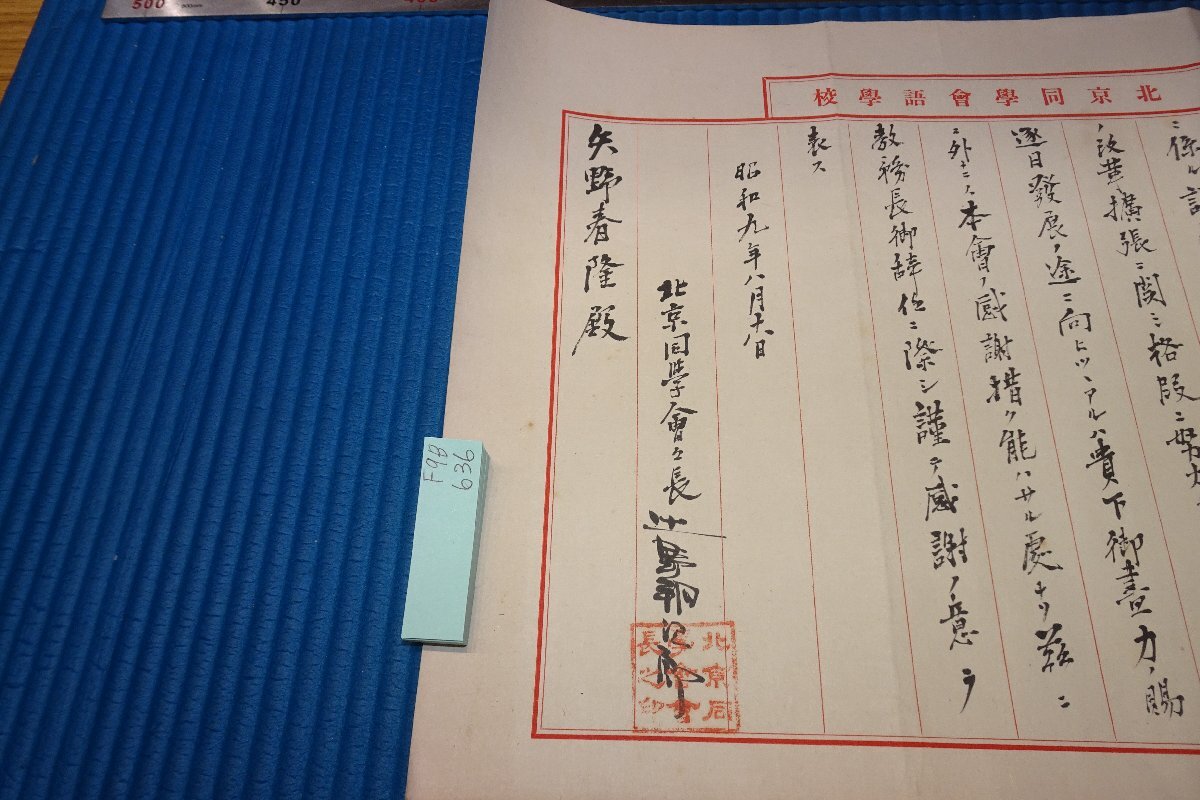 北京同學會語學校
ニ係ル
ノ改葺擴張ニ関シ格段ニ努力
逐日發展ノ途ニ向ヒツヽアルハ貴下御盡力ノ賜
ニ外ナラス本會ノ感謝措ク能ハサル処ナリ茲ニ
教務長御辞任ニ際シ謹テ感謝ノ意ヲ
表ス
昭和九年八月十八日
北京同學會々長
矢野春隆殿
北京同學會會長之印
F9B
636
500
450
400